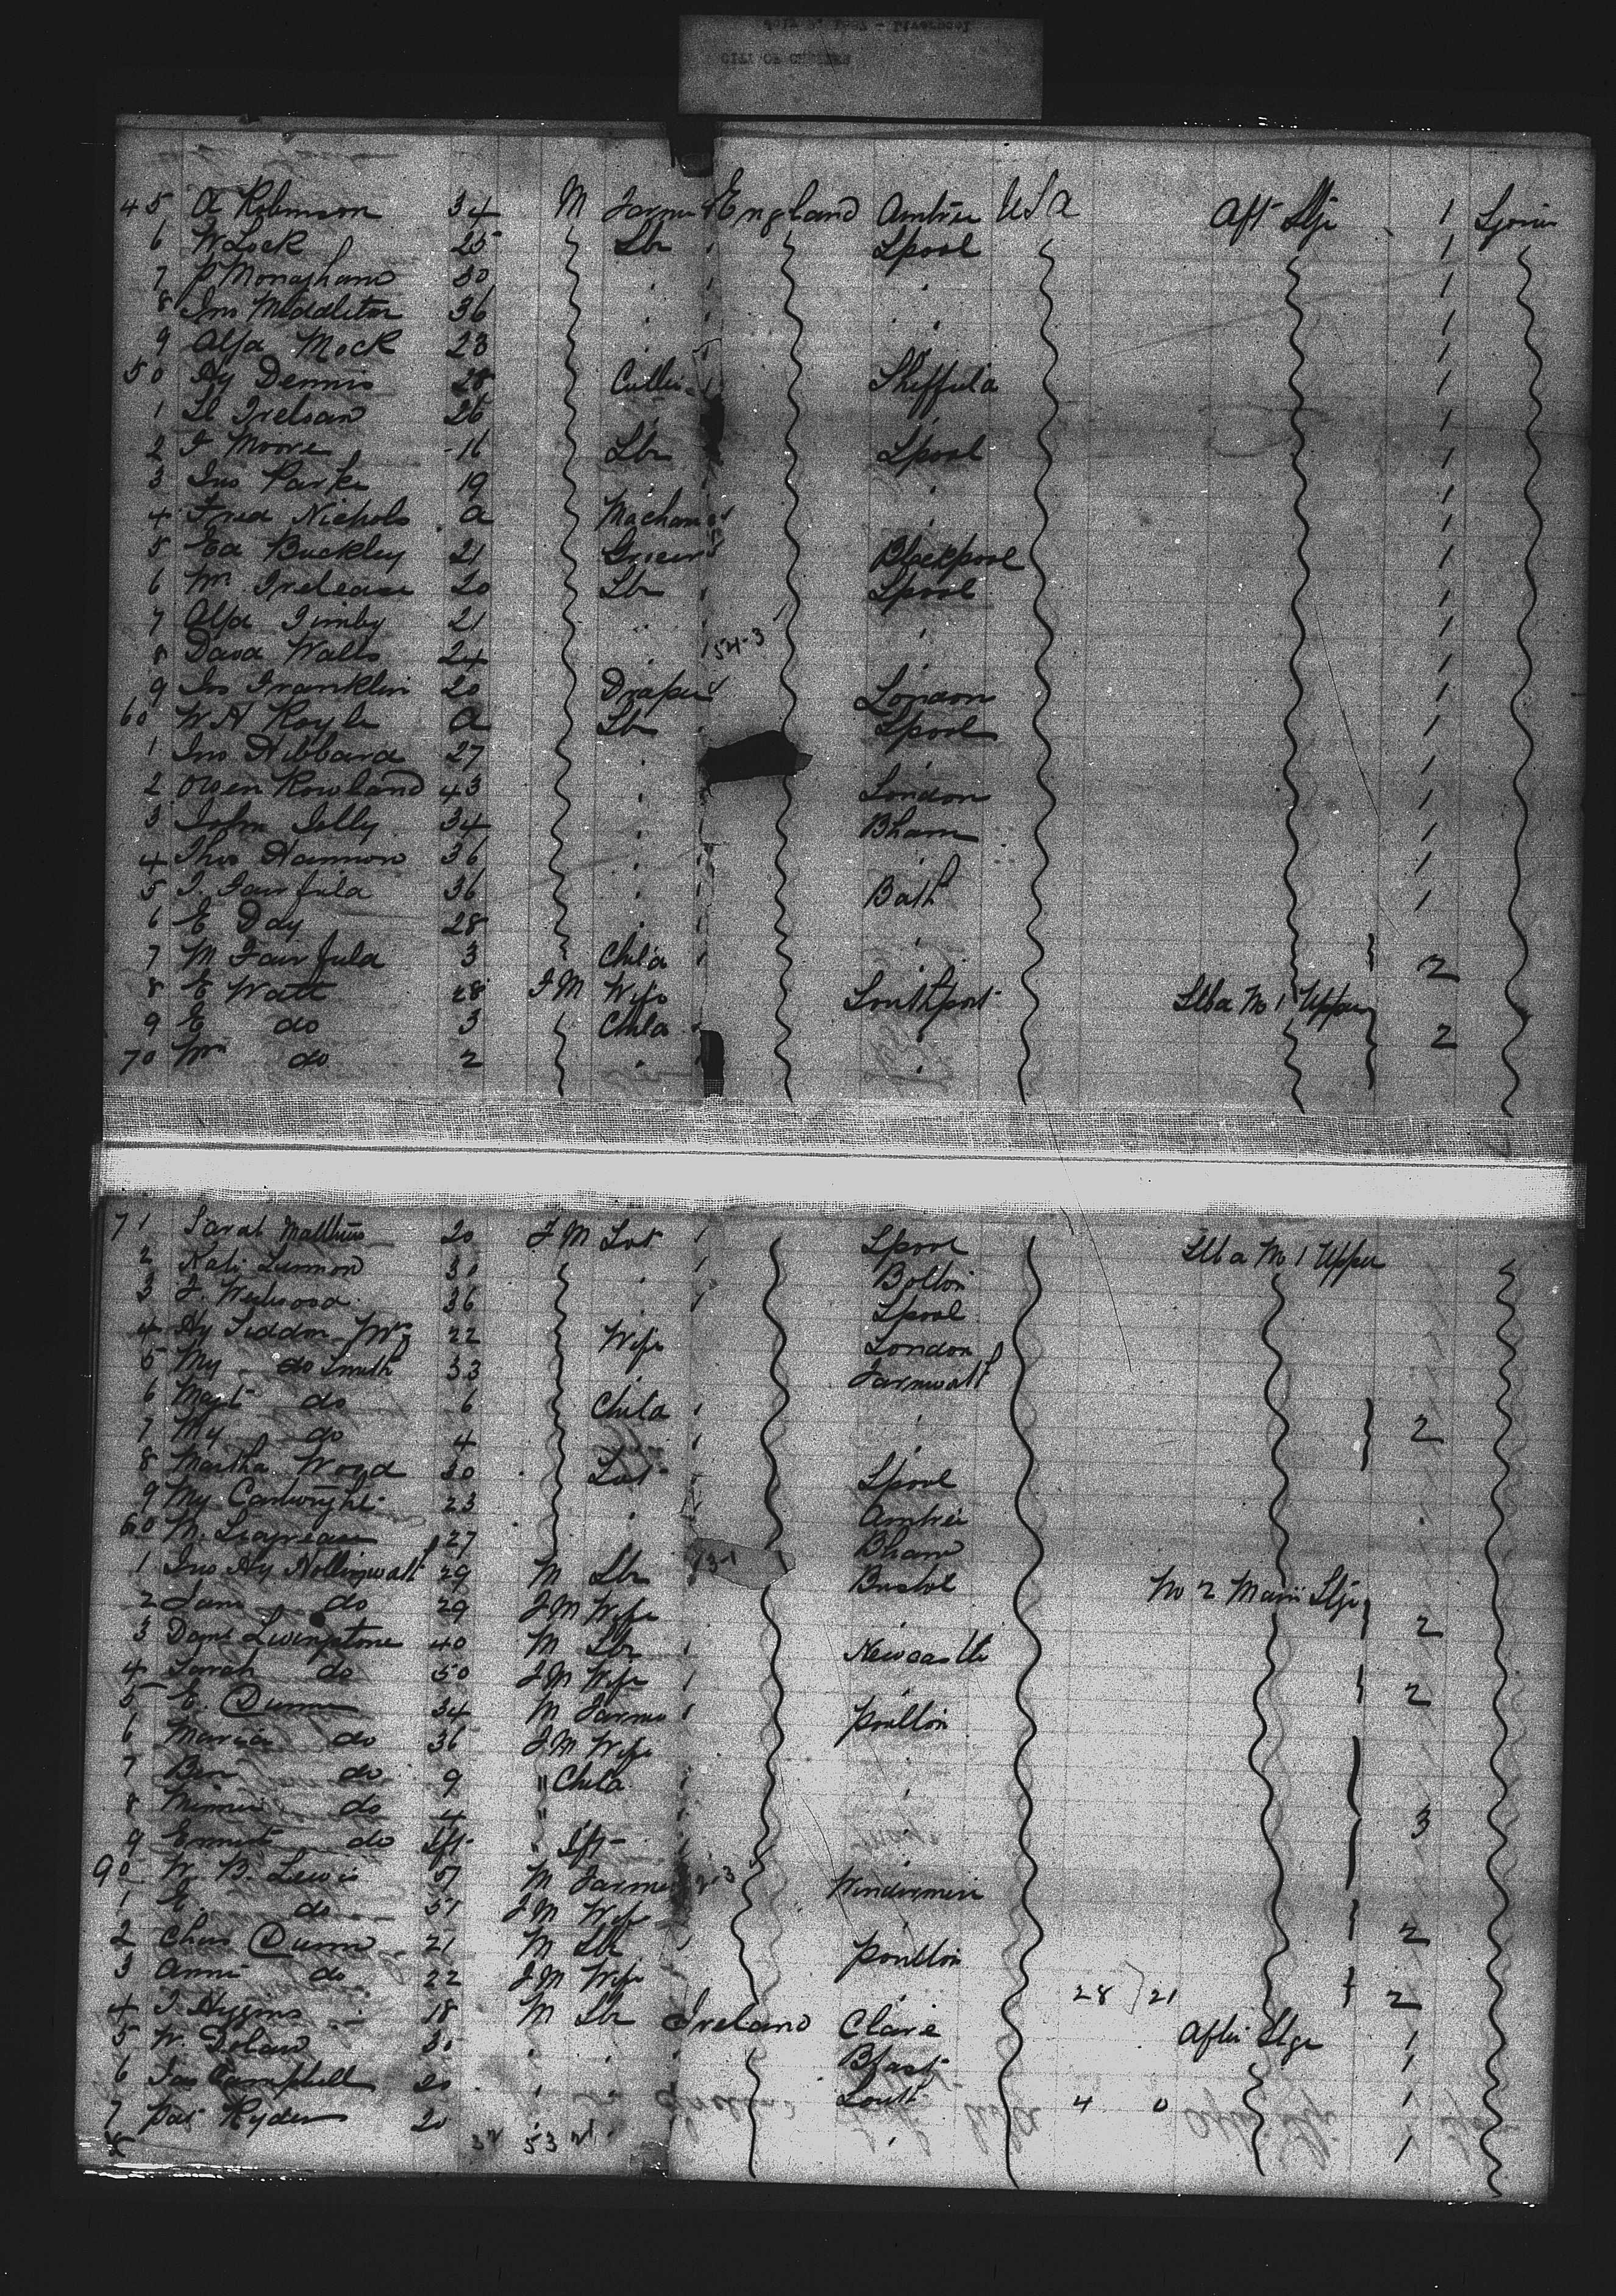 CITY OF CHESTER
45 A Robinson 34 M Farmer England Aintree USA Aft Stge 1
6 W Lock 25 Lbr Lpool 1
7 P Monaghan 30 1
8 Jno Middleton 36 1
9 Alfd Mock 23 1
50 Hy Dennis 28 Cutler Sheffield 1
1 26 1
2 J Moore 16 Lbr Lpool 1
3 Jno Parke 19 1
4 Fred Nichols A 1
5 Ed Buckley 21 Grocer Blackpool 1
6 Wm 20 Lbr Lpool 1
7 Alfd 21 1
8 David Walls 24 1
9 Jos Franklin 20 Draper London 1
60 W H Royle A Lbr Lpool 1
1 Jno Hibbard 27 1
2 Owen Rowland 43 London 1
3 John Jelly 34 Bham 1
4 Thos Hannon 36 1
5 J. Fairfield 36 Bath 1
6 E Day 28
7 M Fairfield 3 Child 2
8 E Watt 28 F M Wife Southport Stbd No 1 Upper
9 E do 3 Child 2
70 Wm do 2
71 Sarah Matthews 20 F M Lpool Stbd No 1 Upper
2 Kate 30 Bolton
3 36 Lpool
4 22 Wife London
5 My do Smith 33
6 Magt do 6 Child 2
7 My do 4
8 Martha Wood 30 Lpool
9 My Cartwright 23 Aintree
60 27 Bham
1 Jno Hy 29 M Lbr Bristol No 2 Main Stge
2 Jane do 29 F M Wife 2
3 Davd Livingstone 40 M Lbr Newcastle
4 Sarah do 50 F M Wife 2
5 E. Dunn 34 M Farmer Poulton
6 Maria do 36 F M Wife
7 Ben do 9 " Child
8 Minnie do 4 " 3
9 Ernest do Ift " Ift
90 W. B. Lewis 51 M Farmer Windermere
1 E. do 51 F M Wife 2
2 Chas Dunn 21 M Lbr Poulton
3 Annie do 22 F M Wife 28 21 2
4 J Higgins 18 M Lbr Ireland Clare After Stge 1
5 W. Dolan 30 Bfast 1
6 Jas Campbell 20 Louth 4 0 1
7 Pat Ryder 20 1
8 53